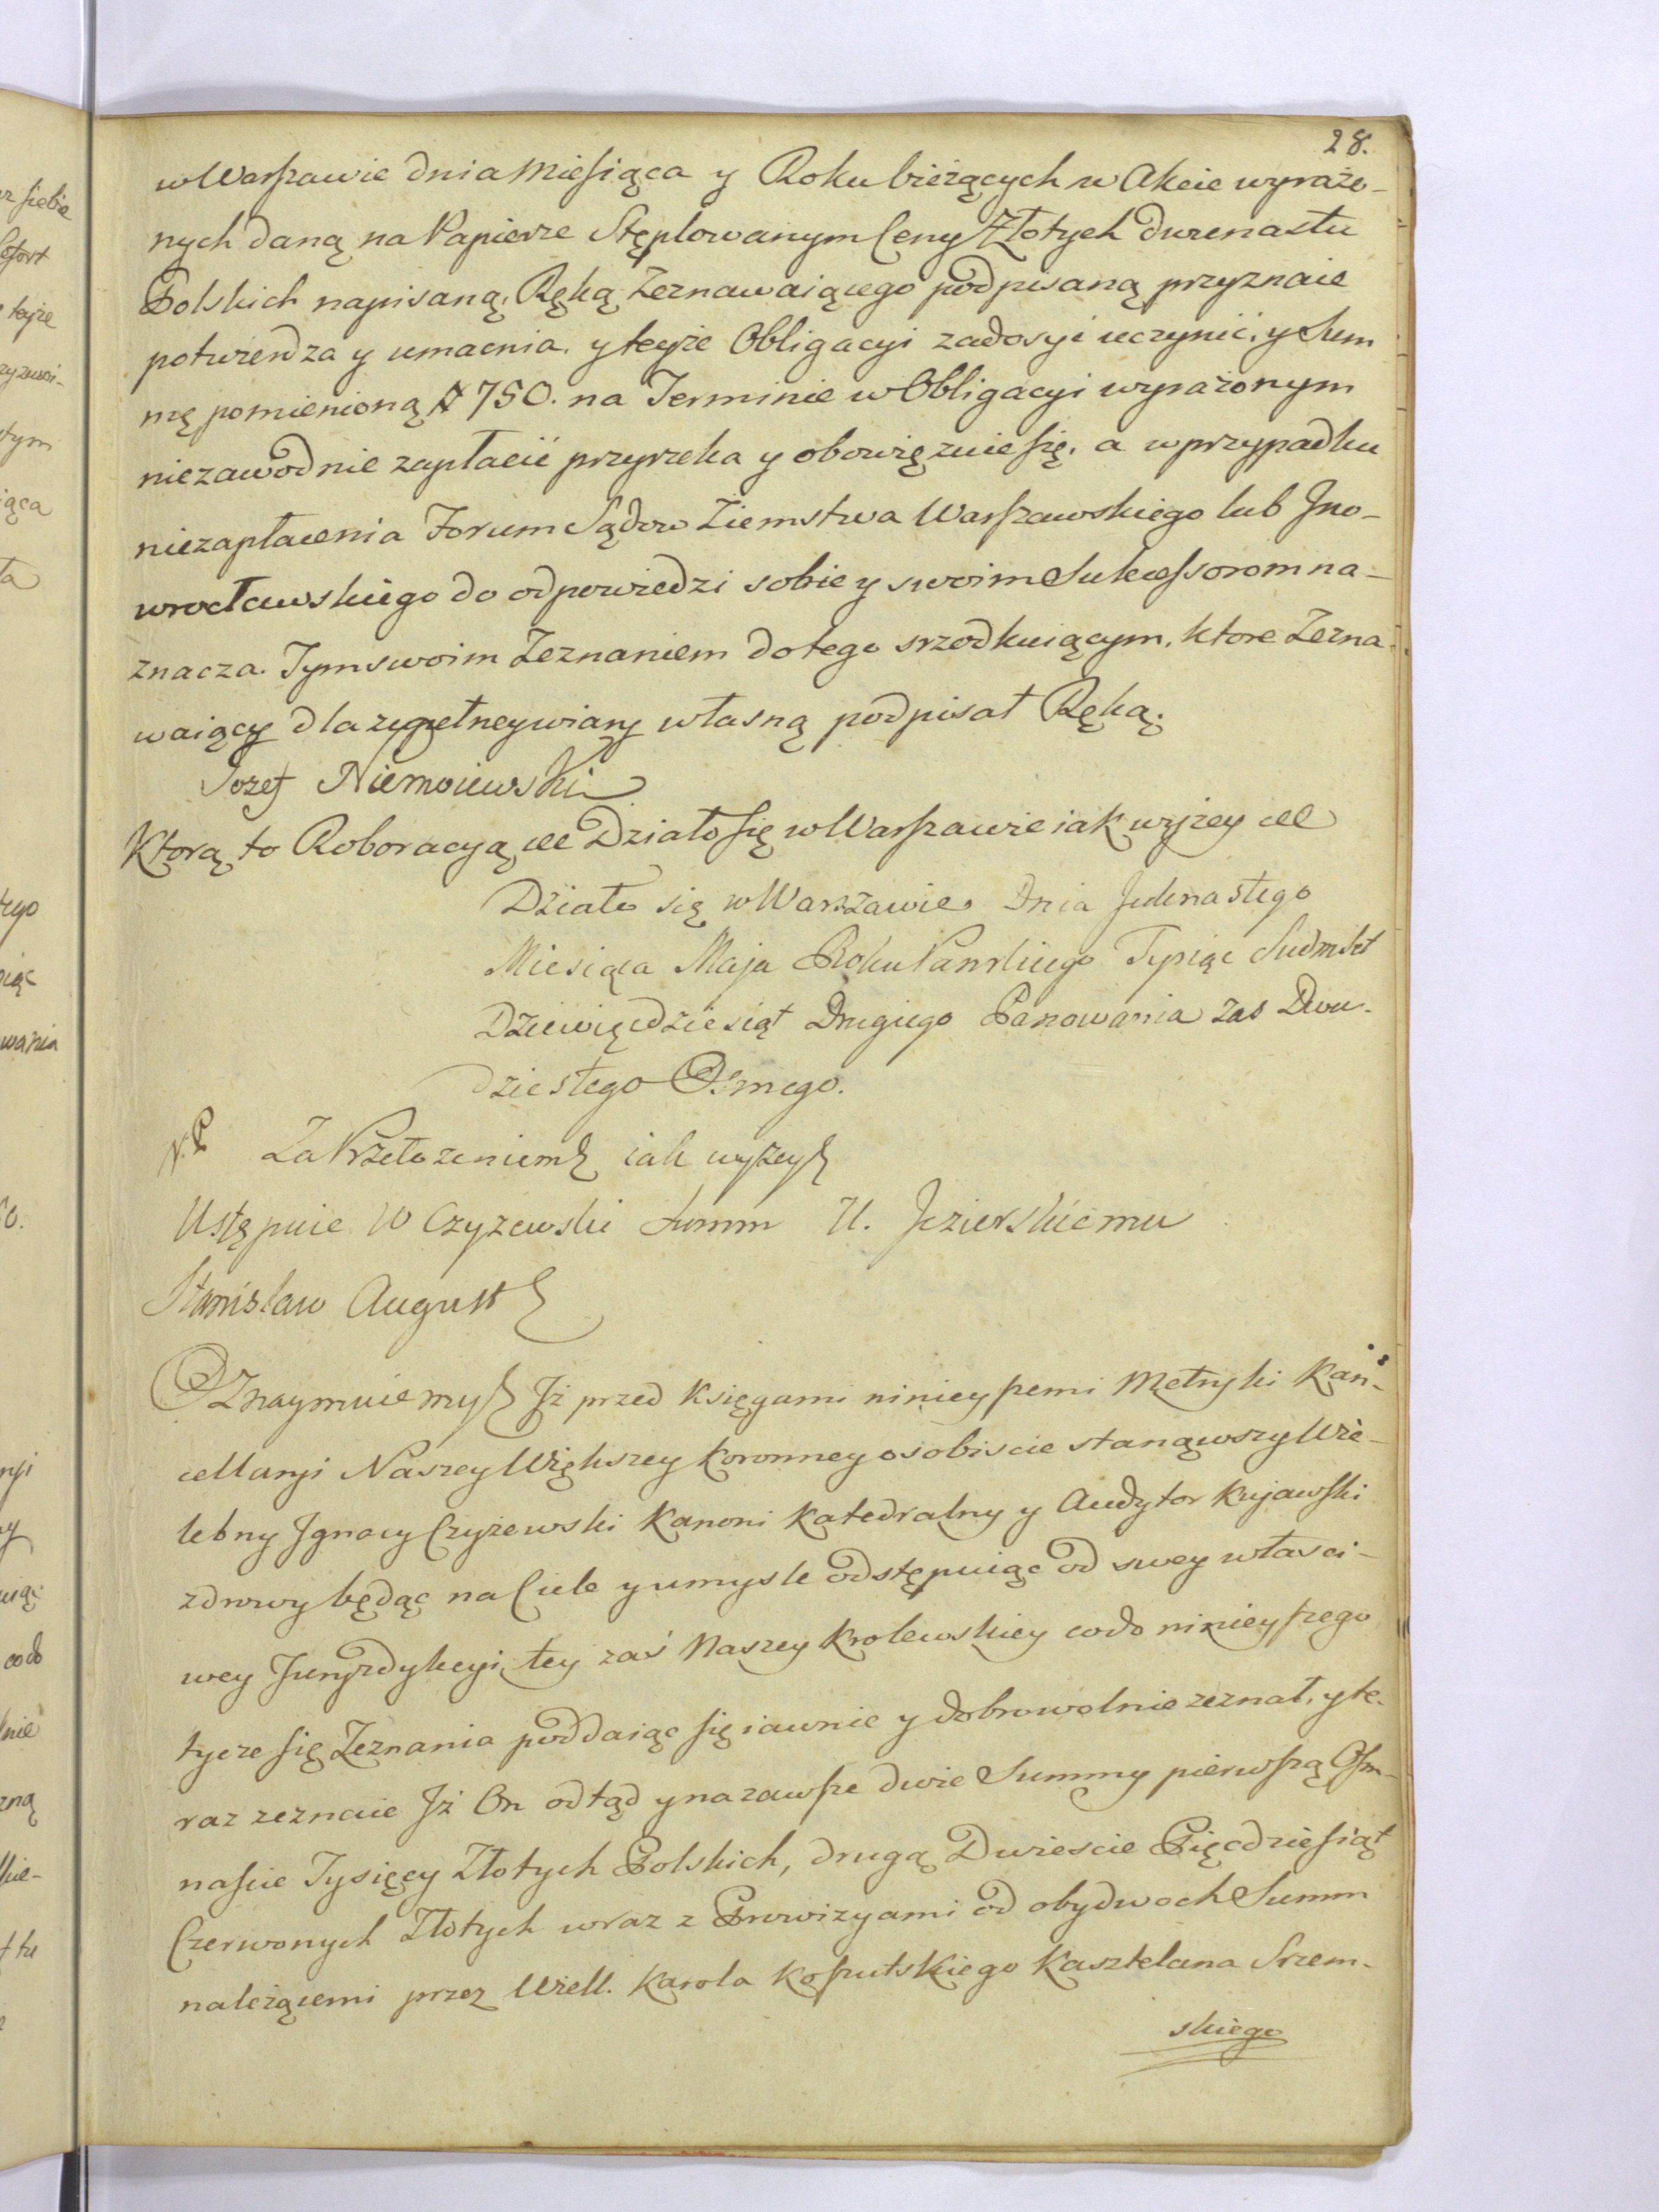 28.
w Warszawie dnia Miesiąca y Roku bieżących w Akcie wyrażo-
nych daną na Papierze Stęplowanym Ceny Złotych dwunastu
Polskich napisaną, Ręką Zeznawaiącego podpisaną przyznaie
potwierdza y umacnia. y teyże Obligacyi zadosyć uczynić, y Sum
mę pomienioną # 750. na Terminie w Obligacyi wyrażonym
niezawodnie zapłacić przyrzeka y obowięzuie się. a w przypadku
niezapłacenia Forum Sądow Ziemstwa Warszawskiego lub Jno-
wrocławskiego do odpowiedzi sobie y swoim Sukcessorom na-
znacza. Tym swoim Zeznaniem do tego srzodkuiącym, ktore Zezna
waiący dla zupełney wiary własną podpisał Ręką.
Jozef Niemoiewski
Ktorą to Roboracyą etc Działo się w Warszawie iak wyżey etc
Działo się w Warszawie Dnia Jedenastego
Miesiąca Maja Roku Panskiego Tysiąc Siedmset
Dziewięćdziesiąt Drugiego Panowania zas Dwu-
dziestego Osmego.
N. P Za Przełozeniem iak wyzey
Ustępuie W Czyzewski summ U. Jezierskiemu
Stanisław August
Oznaymuiemy Jż przed Księgami ninieyszemi Metryki Kan-
cellaryi Naszey Większey Koronney osobiscie stanąwszy Wie-
lebny Jgnacy Czyżewski Kanoni Katedralny y Audytor Kujawski
zdrowy będąc na Ciele y umysle odstępuiąc od swey własci-
wey Juryzdykcyi, tey zaś Naszey Krolewskiey co do ninieyszego
tycze się Zeznania poddaiąc się iawnie y dobrowolnie zeznał, y te-
raz zeznaie Jż On odtąd y na zawsze dwie Summy pierwszą Osm-
naście Tysięcy Złotych Polskich, drugą Dwieście Pięćdziesiąt
Czerwonych Złotych wraz z Prowizyami od obydwoch Summ
należącemi przez Wiell. Karola Koszutskiego Kasztelana Srzem-
skiego